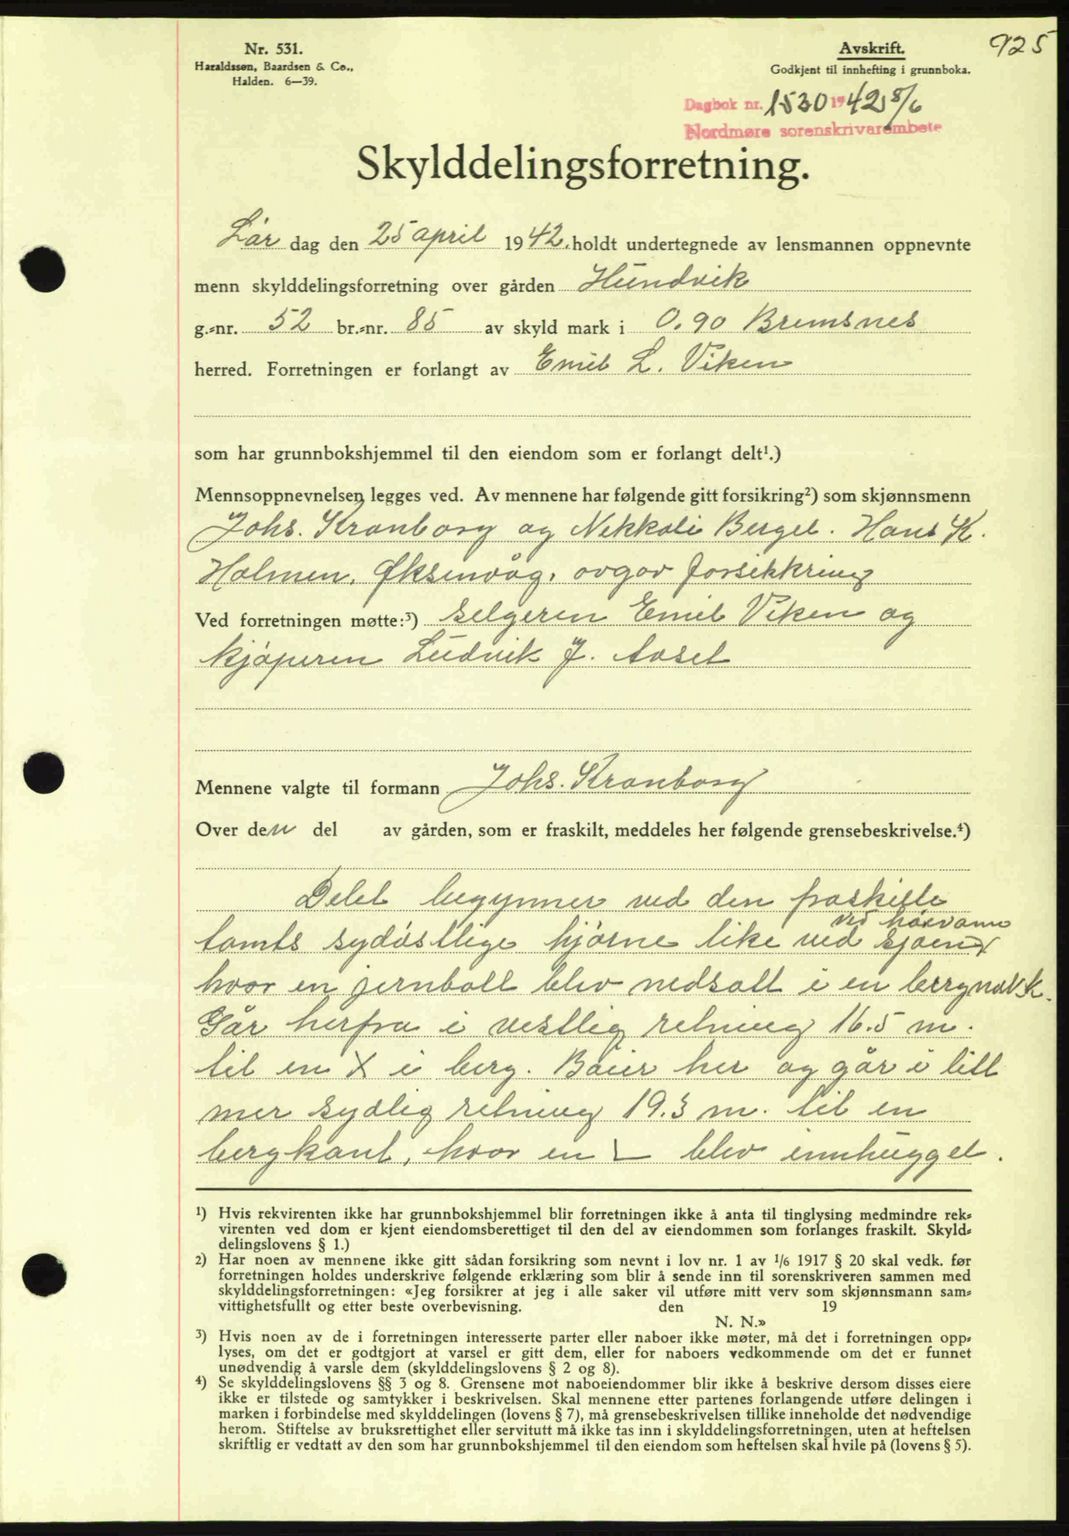 925
Nr. 531.
Haraldssøn, Baardsen & Co.,
Halden. 6—39.
Avskrift.
Godkjent til innhefting i grunnboka.
Dagbok nr. 1530 1942 8/6
Nordmøre sorenskrivarembete
Skylddelingsforretning.
Lør dag den 25 april 1942, holdt undertegnede av lensmannen oppnevnte
menn skylddelingsforretning over gården Hundvik
g.-nr. 52 br.-nr. 85 av skyld mark i 0.90 Bremsnes
herred. Forretningen er forlangt av Emil L. Viken
som har grunnbokshjemmel til den eiendom som er forlangt delt¹.)
Mennsoppnevnelsen legges ved. Av mennene har følgende gitt forsikring²) som skjønnsmenn
Johs. Kranborg og Nekkoli Berget. Hans K.
Holmen, Øksenvåg, avgav forsikkring
Ved forretningen møtte:³) selgeren Emil Viken og
kjøperen Ludvik J. Aaset
Mennene valgte til formann Johs. Kranborg
Over den del av gården, som er fraskilt, meddeles her følgende grensebeskrivelse.⁴)
Delet begynner ved den fraskilte
tomts sydøstlige hjørne like ved sjøen ved høivann
hvor en jernbolt blev nedsatt i en berg
Går herfra i vestlig retning 16.5 m.
til en X i berg. Bøier her og går i litt
mer sydlig retning 19.3 m. til en
bergkant, hvor en ∟ blev innhugget.
¹) Hvis rekvirenten ikke har grunnbokshjemmel blir forretningen ikke å anta til tinglysing medmindre rek-
virenten ved dom er kjent eiendomsberettiget til den del av eiendommen som forlanges fraskilt. Skyld-
delingslovens § 1.)
²) Har noen av mennene ikke gitt sådan forsikring som nevnt i lov nr. 1 av 1/6 1917 § 20 skal vedk. før
forretningen holdes underskrive følgende erklæring som blir å sende inn til sorenskriveren sammen med
skylddelingsforretningen: «Jeg forsikrer at jeg i alle saker vil utføre mitt verv som skjønnsmann sam-
vittighetsfullt og etter beste overbevisning. den 19
N. N.»
³) Hvis noen av de i forretningen interesserte parter eller naboer ikke møter, må det i forretningen opp-
lyses, om det er godtgjort at varsel er gitt dem, eller for naboers vedkommende om det er funnet
unødvendig å varsle dem (skylddelingslovens § 2 og 8).
⁴) Se skylddelingslovens §§ 3 og 8. Grensene mot naboeiendommer blir ikke å beskrive dersom disses eiere
ikke er tilstede og samtykker i beskrivelsen. Skal mennene etter partenes forlangende utføre delingen i
marken i forbindelse med skylddelingen (lovens § 7), må grensebeskrivelsen tillike inneholde det nødvendige
herom. Stiftelse av bruksrettighet eller servitutt må ikke tas inn i skylddelingsforretningen, uten at heftelsen
skriftlig er vedtatt av den som har grunnbokshjemmel til den eiendom som heftelsen skal hvile på (lovens § 5).